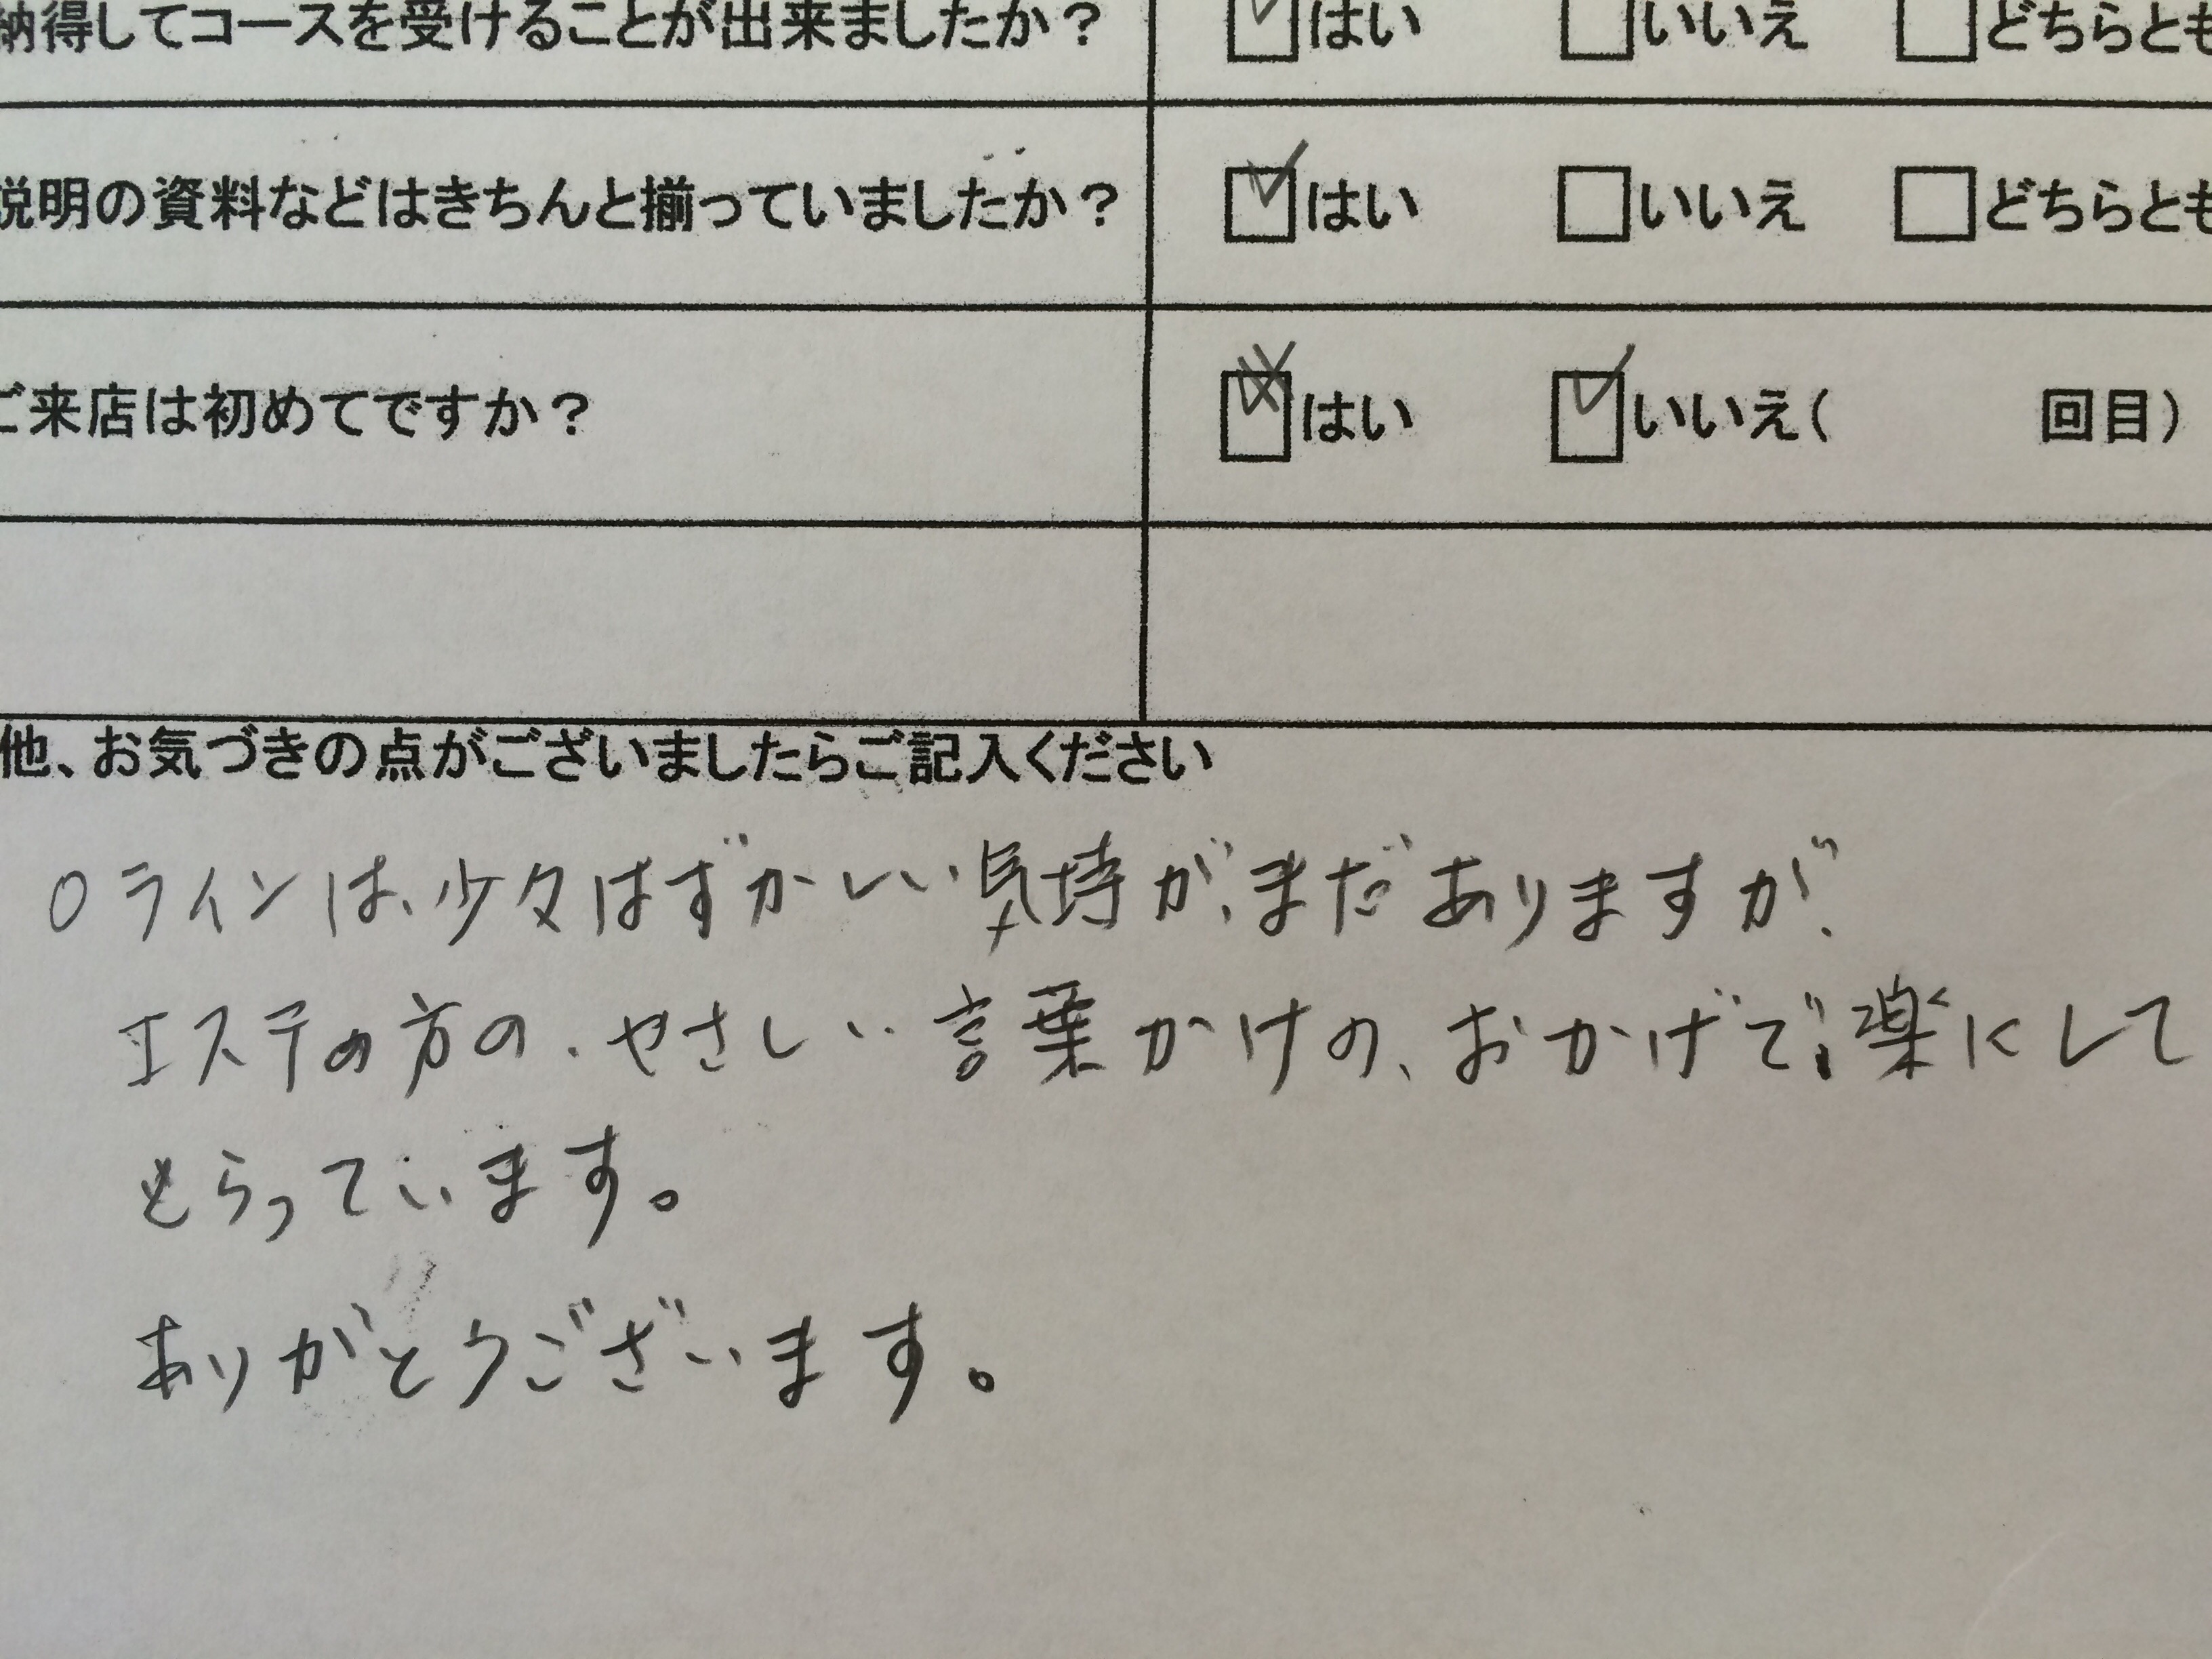 納得してコースを受けることが出来ましたか？ はい いいえ どちらとも
説明の資料などはきちんと揃っていましたか？ はい いいえ どちらとも
ご来店は初めてですか？ はい いいえ( 回目)
他、お気づきの点がございましたらご記入ください
Oラインは、少々はずかしい気持が、まだありますが、
エステの方の、やさしい言葉かけの、おかげで、楽にして
もらっています。
ありがとうございます。